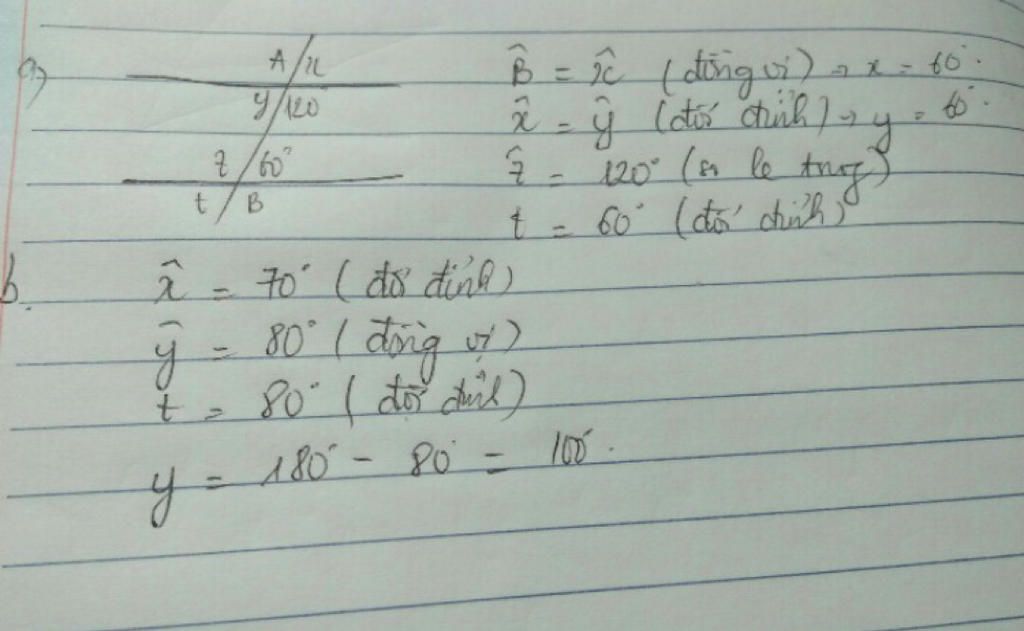 a)
A/x
y/120°
z/60°
t/B
B̂ = x̂ (đồng vị) → x = 60°.
x̂ = ŷ (đối đỉnh) → y = 60°.
ẑ = 120° (so le trong)
t = 60° (đối đỉnh)
b.
x̂ = 70° (đối đỉnh)
ŷ = 80° (đồng vị)
t = 80° (đối đỉnh)
y = 180° - 80° = 100°.